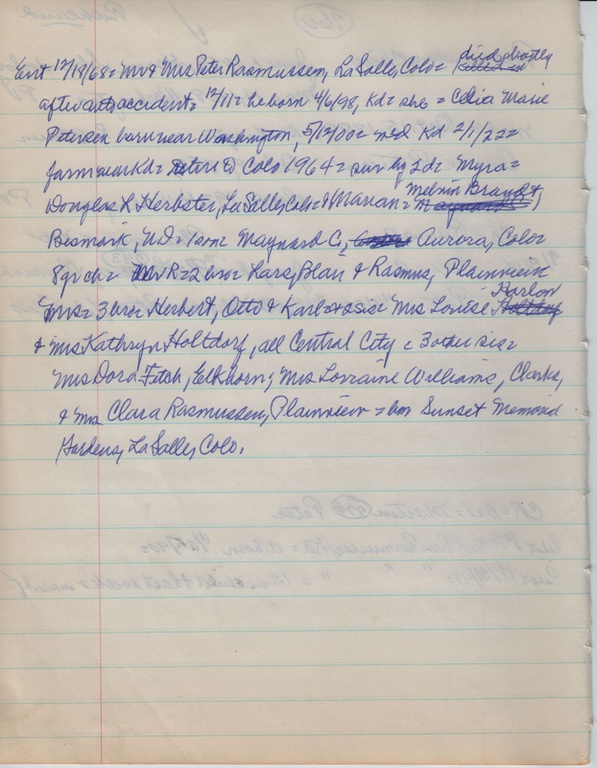 Ent 12/18/68 = Mr & Mrs Peter Rasmussen, La Salle, Colo = died shortly
after auto accident = 12/11 = he born 4/6/98, Kd = she = Celia Marie
Petersen born near Washington, 5/12/00 = med Kd 2/1/22 =
farm near Kd = retired Colo 1964 = surv by 2d = Myra =
Douglas L Herbster, La Salle, Colo = & Marian = Melvin Brandt,
Bismark, ND = 1 son = Maynard C, Aurora, Colo =
8 gr ch = Mr R = 2 bro = Lars, Blair & Rasmus, Plainview
Mrs = 3 bro = Herbert, Otto & Karl = sis = Mrs Louise Harlow
& Mrs Kathryn Holtdorf, all Central City = 3 other sis =
Mrs Dora Fitch, Elkhorn; Mrs Lorraine Williams, Clarks,
& Mrs Clara Rasmussen, Plainview = bur Sunset Memorial
Gardens, La Salle, Colo.